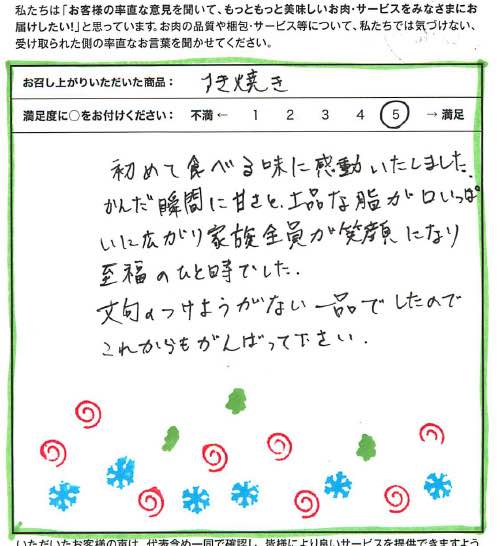 私たちは「お客様の率直な意見を聞いて、もっともっと美味しいお肉・サービスをみなさまにお
届けしたい!」と思っています。お肉の品質や梱包・サービス等について、私たちでは気づけない、
受け取られた側の率直なお言葉を聞かせてください。
お召し上がりいただいた商品： すき焼き
満足度に○をお付けください： 不満 ← 1 2 3 4 5 → 満足
初めて食べる味に感動いたしました。
かんだ瞬間に甘さと、上品な脂が口いっぱ
いに広がり家族全員が笑顔になり
至福のひと時でした.
文句のつけようがない一品でしたので
これからもがんばって下さい.
いただいたお客様の声は、代表含め一同で確認し、皆様により良いサービスを提供できますよう